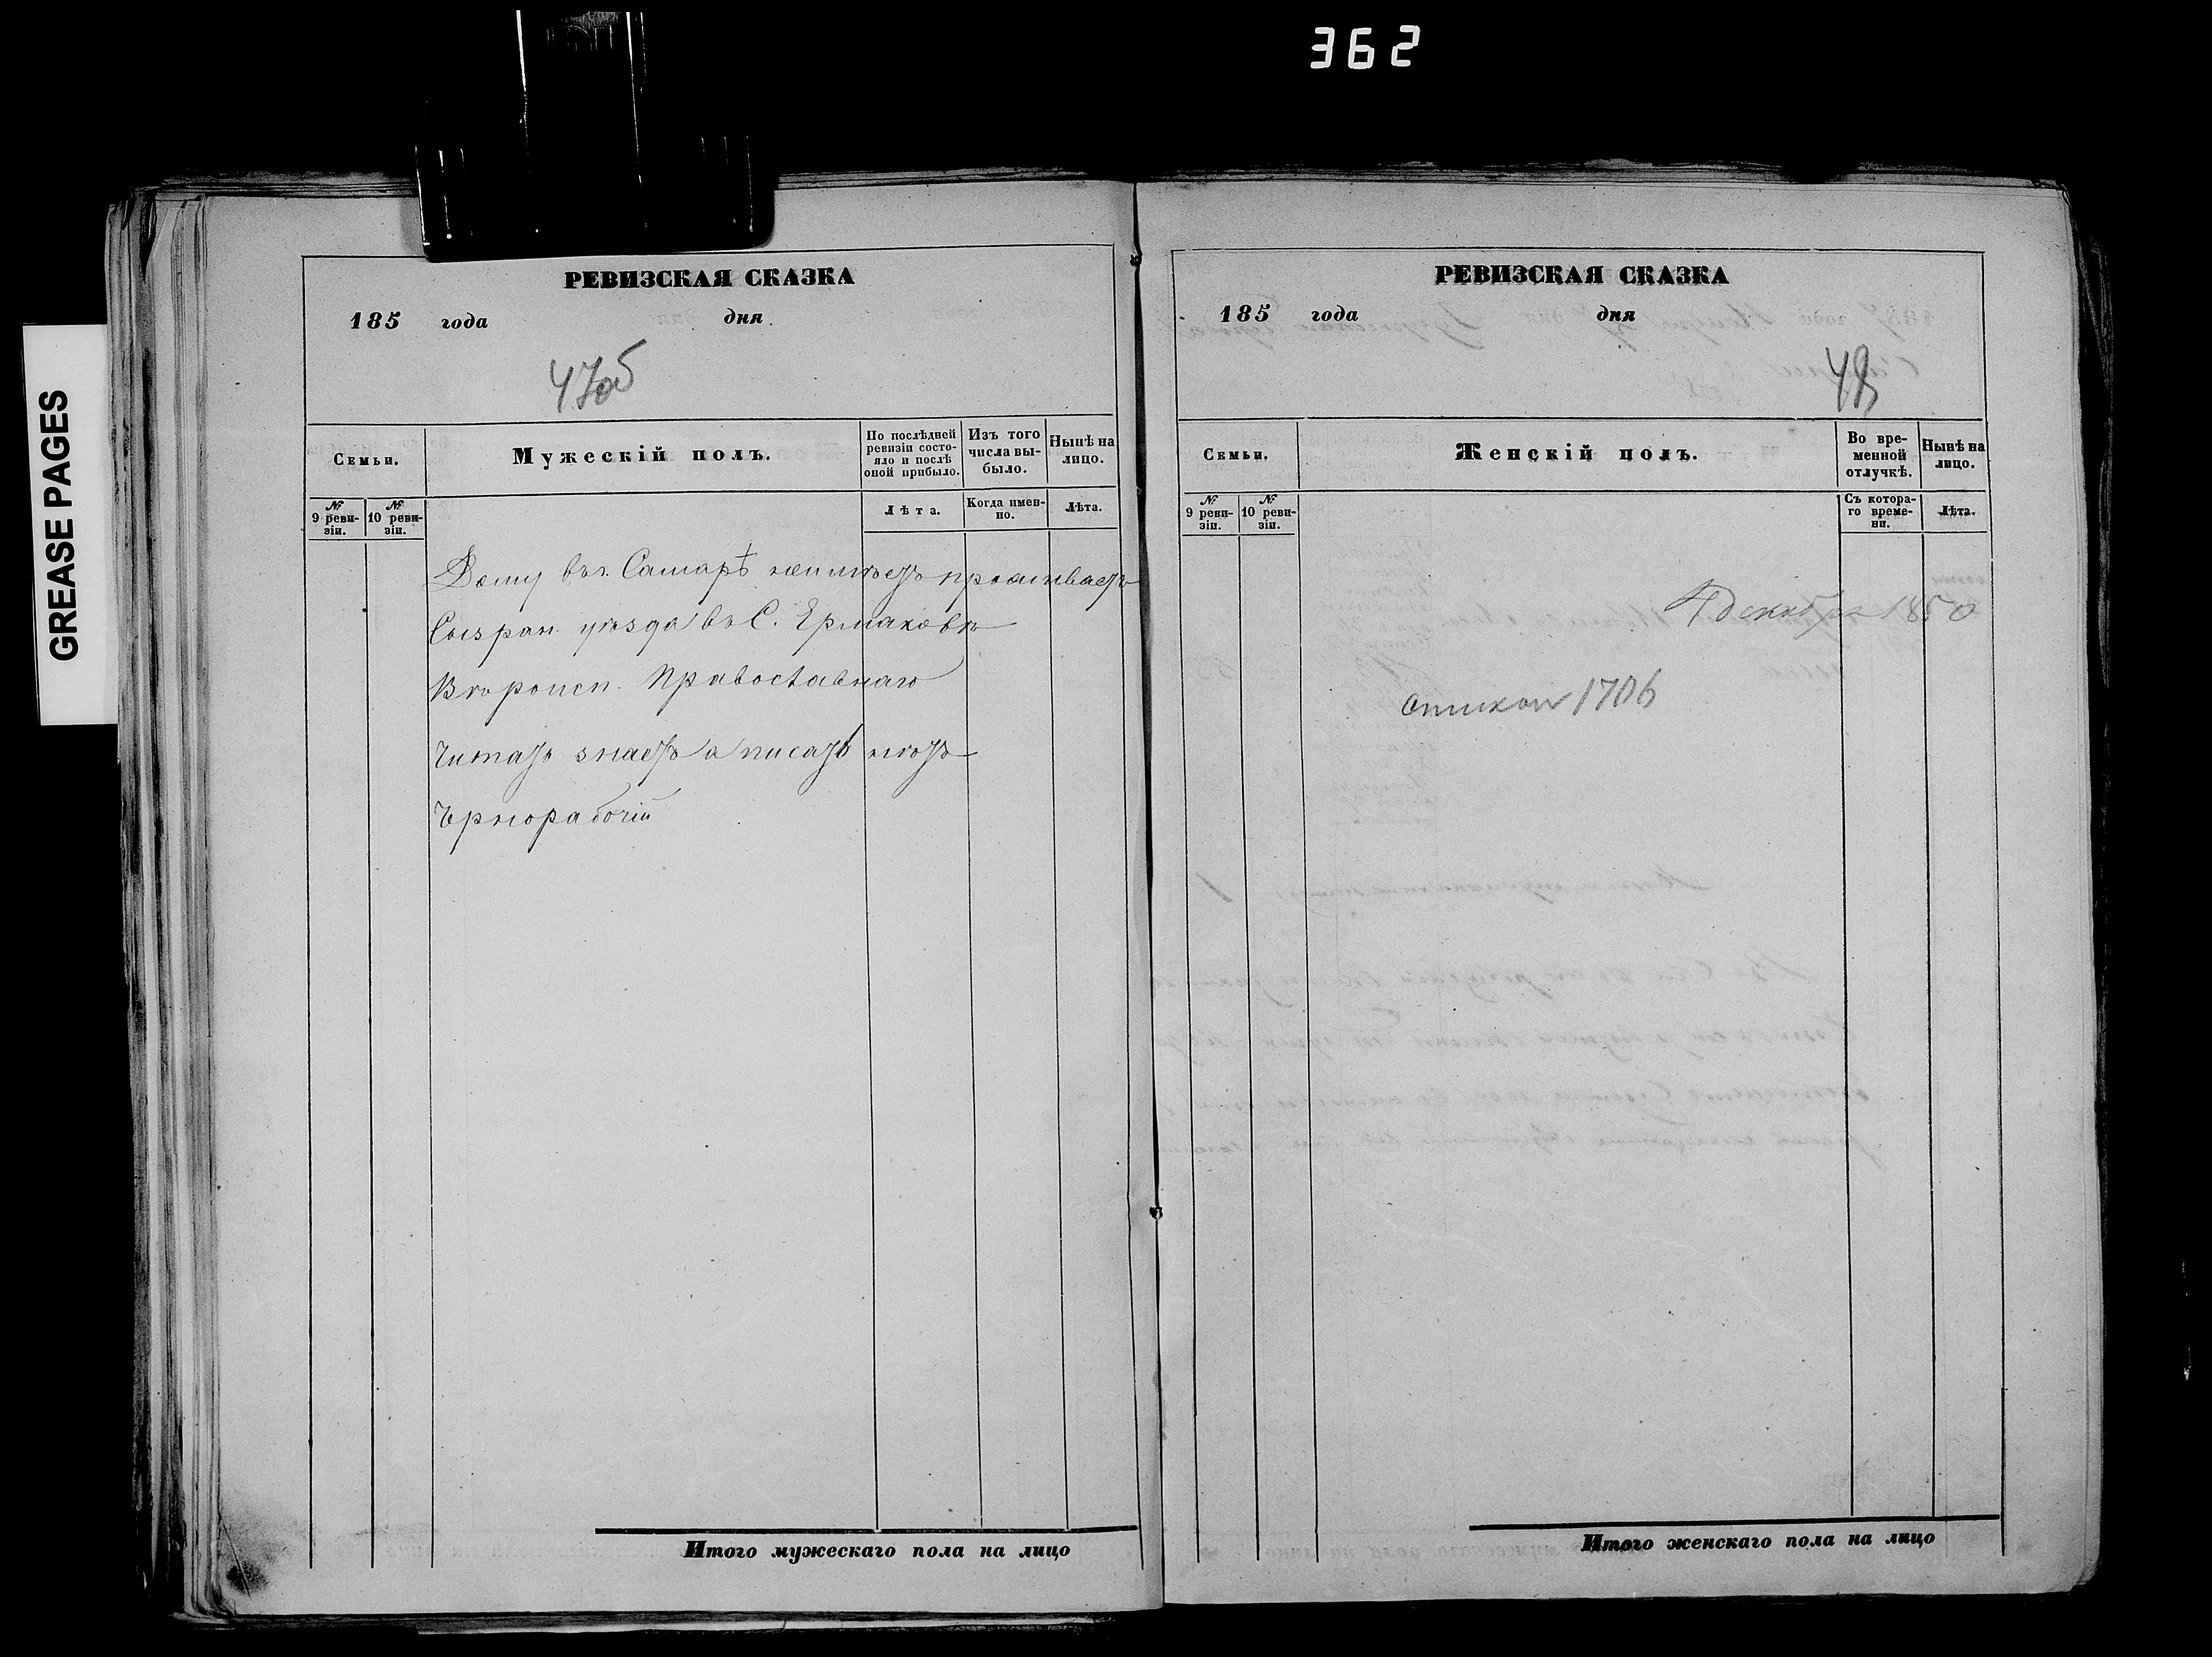 362
GREASE PAGES
РЕВИЗСКАЯ СКАЗКА
185 года дня
47об
Семьи.
Мужескій полъ.
По послѣдней ревизіи состояло и послѣ оной прибыло.
Изъ того числа выбыло.
Нынѣ на лицо.
№ 9 ревизіи.
№ 10 ревизіи.
Лѣта.
Когда именно.
Лѣта.
Дому въ г. Самарѣ неимѣетъ проживаетъ
Сызран. уѣзда въ С. Ермаковѣ
Вѣроисп. Православнаго
Читать знаетъ а писать нѣтъ
Чернорабочій
Итого мужескаго пола на лицо
РЕВИЗСКАЯ СКАЗКА
185 года дня
48
Семьи.
Женскій полъ.
Во временной отлучкѣ.
Нынѣ на лицо.
№ 9 ревизіи.
№ 10 ревизіи.
Съ котораго времени.
Лѣта.
декабря 1850
1706
Итого женскаго пола на лицо